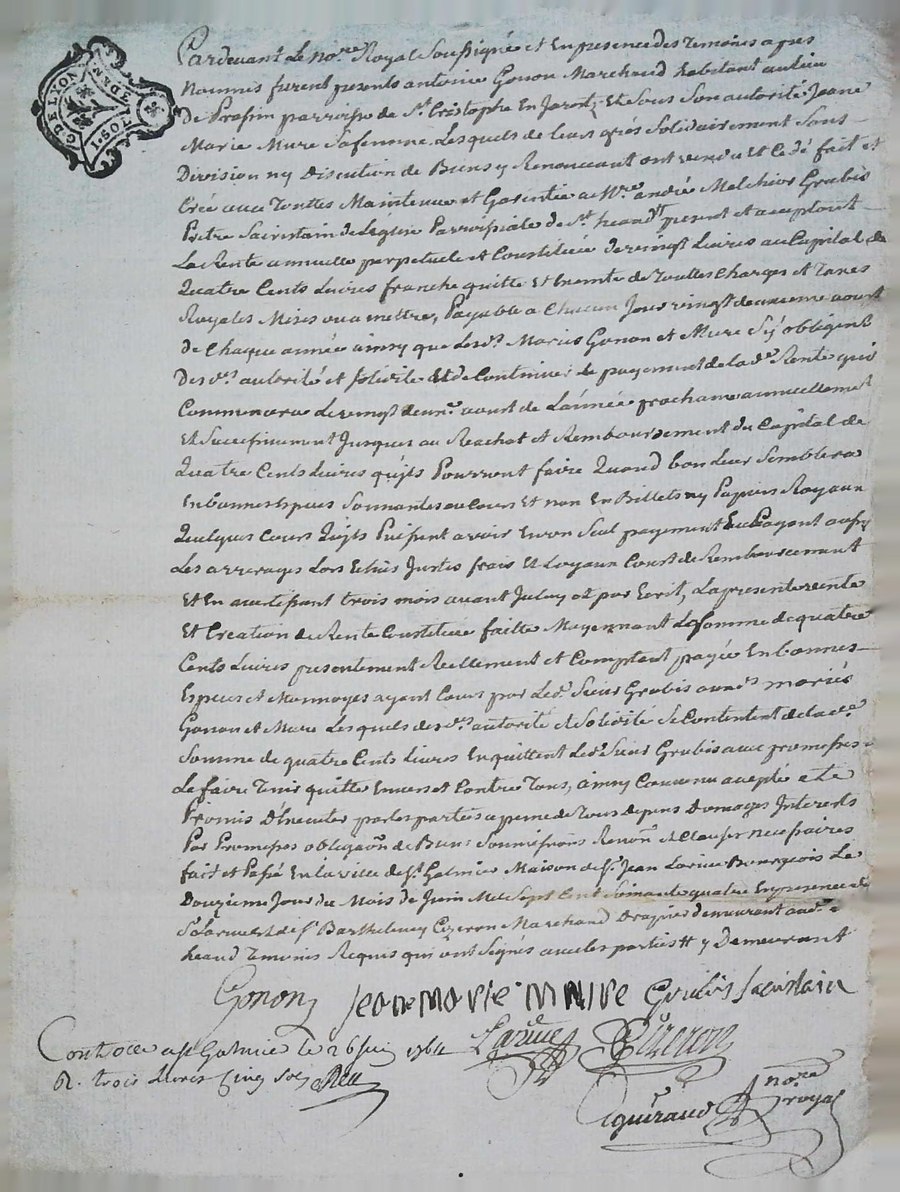 G. DE LYON
1. SOL 8 DEN.
Pardevant Le no.re Royal Soussigné et En presence des temoins apres
Nommés furent presents antoine Gonon Marchand habitant au lieu
De parroisse de S.t Cristophe En Jarest, Et Sous Son autorité Jeane
Marie Mure Sa femme. Lesquels de leurs grés Solidairement Sans
Division ny Discution de Biens y Renonceant ont vendu Et
Créé avec Touttes Maintenue et Garentie a M.re andré Melchior Grubis
Pretre Sacristain de L'eglise Parroissiale de S.t heand present et acceptant
La Rente annuelle perpetuele et Constituée de vingt Livres au Capital de
Quatre Cents Livres franche quitte Et Exemte de Touttes Charges et Taxes
Royales Mises ou a mettre, Payable a Chacun Jour vingt deuxieme aoust
de Chaque année ainsy que Les d.s Mariés Gonon et Mure S'y obligent
Des d.s autorité et solidité Et de Continuer le payement de la d.e Rente qui
Commencera Le vingt deux.e aoust de L'année prochaine annuellement
Et Successivement Jusques au Reachat et Remboursement du Capital de
Quatre Cents Livres qu'ils Pourront faire Quand bon Leur Semblera
En bonnes Especes Sonnantes au Cours Et non En Billets ny Papiers Royaux
Quelques Cours qu'ils Puissent avoir En un Seul payement En Payant aussy
Les arrerages Lors Echus Justes frais Et Loyaux Coust de Remboursement
Et En avertissant trois mois avant par Ecrit, La presente vente
Et Creation de Rente Constituée faitte Moyennant La somme de quatre
Cents Livres presentement Reellement et Comptant payée En bonnes
Especes et Monnoyes ayant Cours par Led. Sieur Grubis aux d.s mariés
Gonon et Mure Lesquels des d.s autorité et Solidité Se Contentent de la d.e
Somme de quatre Cents Livres En quittent Led. Sieur Grubis avec promesses
Le faire Tenir quitte Envers et Contre Tous, ainsy Convenu accepté et
Promis D'Executer par les parties a peine de Tous depens Domages Interests
Par Promesses obligaõn de Biens Soumissions Renon.n et Clauses necessaires
fait et Passé En la ville de S.t Galmier Maison de S.r Jean Larive Bourgeois Le
Douzieme Jour du Mois de Juin Mil Sept Cent Soixante quatre En presence de
de S.r Barthelemy Cizeron Marchand Drapier demeurant aud.
heand Temoins Requis qui ont Signés avec les parties y Demeurant
Gonon Jeane MARie MURe Grubis Sacristain
Controllé a S.t Galmier le 26 Juin 1764 Larive Cizeron
R. trois Livres Cinq Sols
no.re
royal